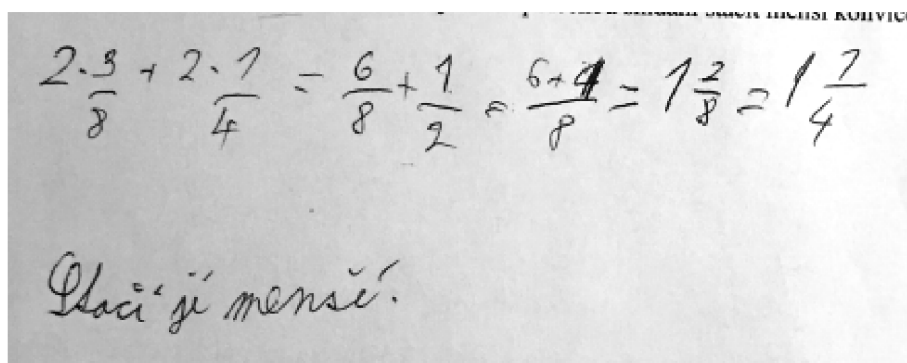 menší konvice
2·3/8 + 2·1/4 = 6/8 + 1/2 = 6+4/8 = 1 2/8 = 1 1/4
Stačí jí menší.